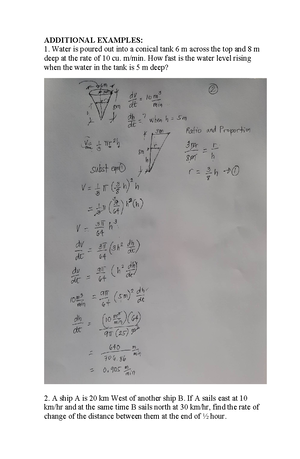 ADDITIONAL EXAMPLES:
1. Water is poured out into a conical tank 6 m across the top and 8 m
deep at the rate of 10 cu. m/min. How fast is the water level rising
when the water in the tank is 5 m deep?
dv/dt = 10 m³/min
dh/dt = ? when h = 5m
V = 1/3 πr²h
Ratio and Proportion
3m/8m = r/h
r = 3/8 h → ①
subst eqn ①
V = 1/3 π (3/8 h)² h
= 1/3 π (9/64) h² (h)
V = 3π/64 h³
dv/dt = 3π/64 (3h² dh/dt)
dv/dt = 9π/64 (h² dh/dt)
10 m³/min = 9π/64 (5m)² dh/dt
dh/dt = (10 m³/min)(64) / 9π (25) m²
= 640/706.86 m/min
= 0.905 m/min
2. A ship A is 20 km West of another ship B. If A sails east at 10
km/hr and at the same time B sails north at 30 km/hr, find the rate of
change of the distance between them at the end of ½ hour.